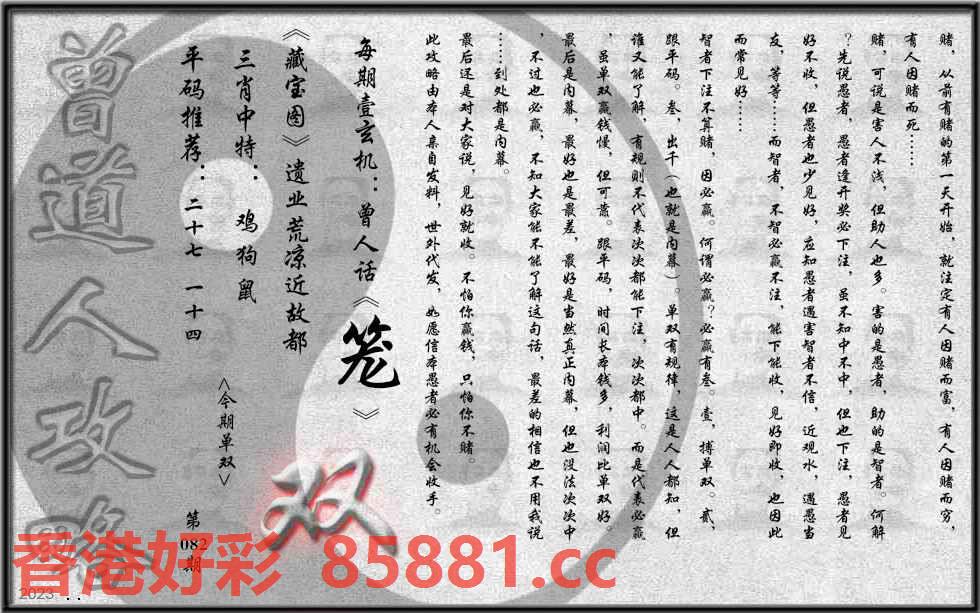 赌，从前有赌的第一天开始，就注定有人因赌而富，有人因赌而穷，
有人因赌而死……
赌，可说是害人不浅，但助人也多。害的是愚者，助的是智者。何解
？先说愚者，愚者逢开奖必下注，虽不知中不中，但也下注，愚者见
好不收，但愚者也少见好，应知愚者遇害智者不信，近观水，遇愚当
友，等等……而智者，不智必赢不注，能下能收，见好即收，也因此
而常见好……
智者下注不算赌，因必赢。何谓必赢？必赢有叁。壹，搏单双。贰，
跟平码。叁，出千（也就是内幕）。单双有规律，这是人人都知，但
谁又能了解，有规则不代表次次都能下注，次次都中。而是代表必赢
，虽单双赢钱慢，但可靠。跟平码，时间长本钱多，利润比单双好。
最后是内幕，最好也是最差，最好是当然真正内幕，但也没法次次中
，不过也必赢，不知大家能不能了解这句话，最差的相信也不用我说
……到处都是内幕。
最后还是对大家说，见好就收。不怕你赢钱，只怕你不赌。
此攻略由本人亲自发料，世外代发，如愿信本愚者必有机会收手。
每期壹玄机：曾人话《笼》
《藏宝图》遗业荒凉近故都
三肖中特：鸡狗鼠
平码推荐：二十七 一十四
<今期单双>
双
第
082
期
曾道人攻略
香港好彩 85881.cc
2023